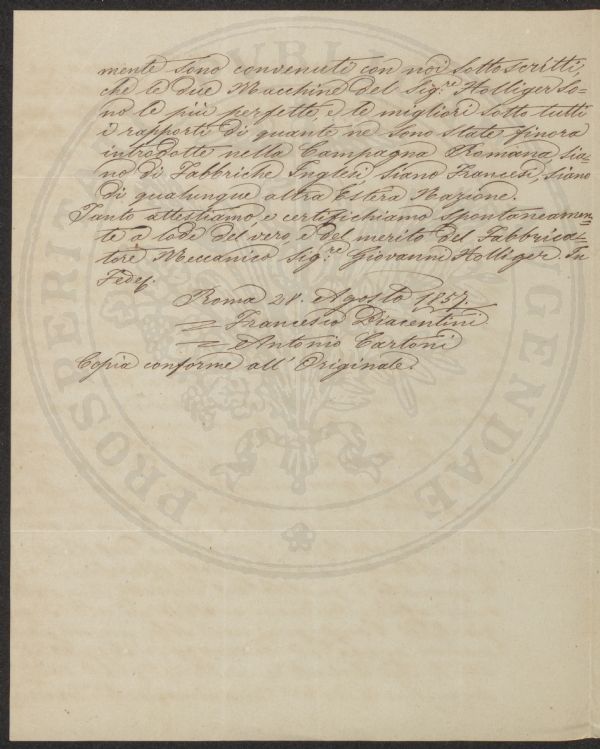 mente sono convenuti con noi sottoscritti,
che le due Macchine del Sig.re Holliger So=
no le più perfette, e le migliori sotto tutti
i rapporti di quante ne sono state finora
introdotte nella Campagna Romana, Sia=
no di Fabbriche Inglesi Siano Francesi, Siano
di qualunque altra Estera Nazione.
Tanto attestiamo, e certifichiamo spontaneamen=
te a lode del vero, e del merito del Fabbrica=
tore Meccanico Sig.re Giovanni Holliger. In
Fede.
Roma 21. Agosto 1857.
= Francesco Piacentini
= Antonio Cartoni
Copia conforme all' Originale.
PROSPERITA
PUBLI
GENDAE